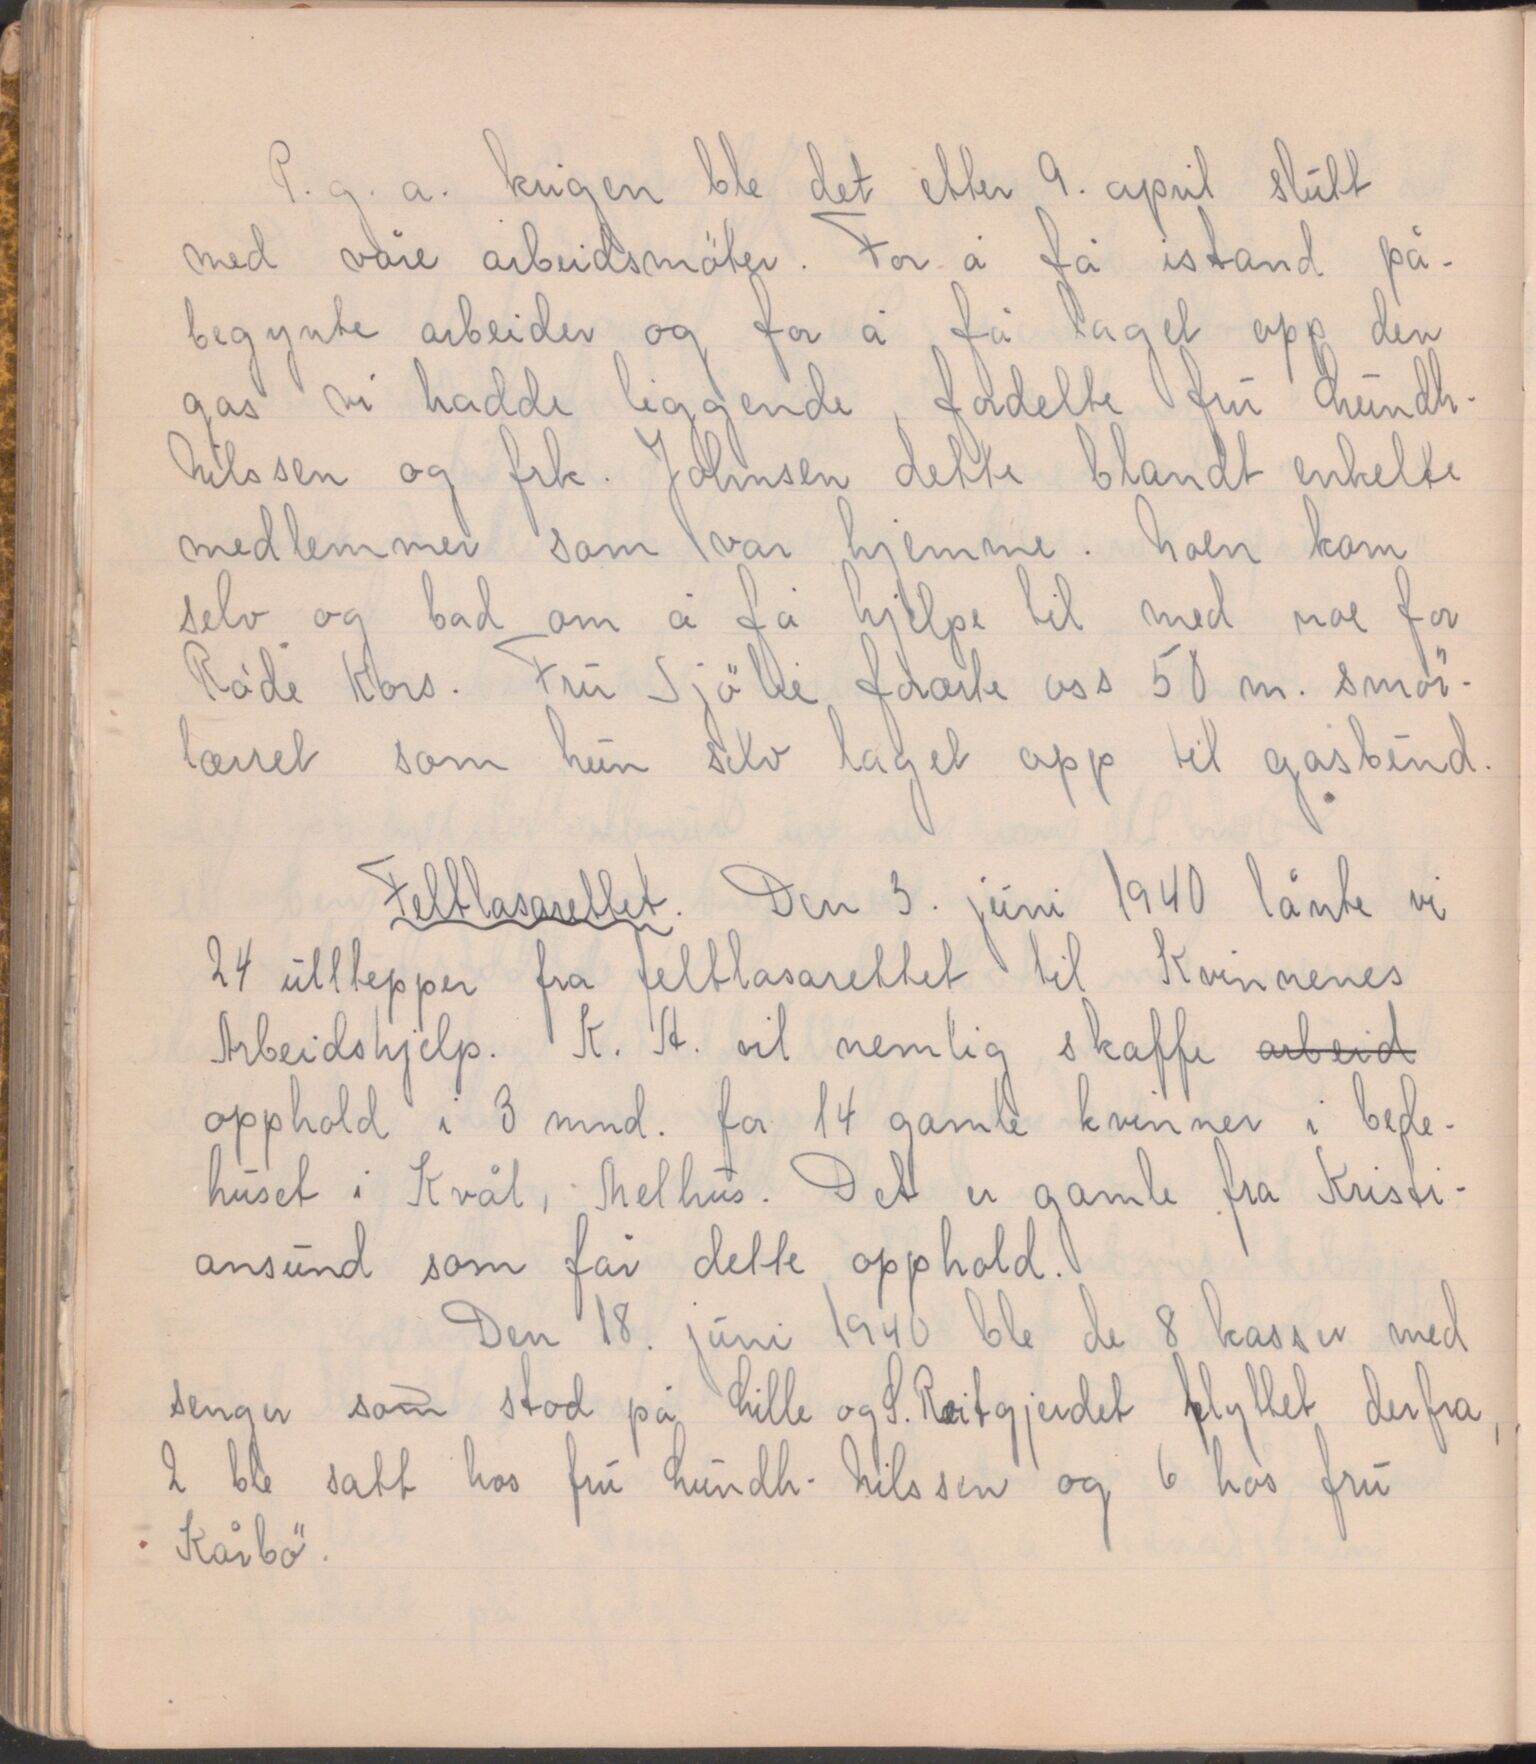 P.g.a. krigen ble det etter 9. april slutt
med våre arbeidsmöter. For å få istand på-
begynte arbeider og for å få laget opp den
gas vi hadde liggende, fordelte fru Lundh-
Nilssen og frk. Johnsen dette blandt enkelte
medlemmer som var hjemme. Noen kom
selv og bad om å få hjelpe til med noe for
Röde Kors. Fru Sjölie forærte oss 50 m. smör-
lærret som hun selv laget opp til gasbind.
Feltlasarettet. Den 3. juni 1940 lånte vi
24 ulltepper fra feltlasarettet til Kvinnenes
Arbeidshjelp. K.A. vil nemlig skaffe arbeid
opphold i 3 mnd. for 14 gamle kvinner i bede-
huset i Kvål, Melhus. Det er gamle fra Kristi-
ansund som får dette opphold.
Den 18. juni 1940 ble de 8 kasser med
senger som stod på Lille og S. Reitgjerdet flyttet derfra,
2 ble satt hos fru Lundh-Nilssen og 6 hos fru
Kårbö.